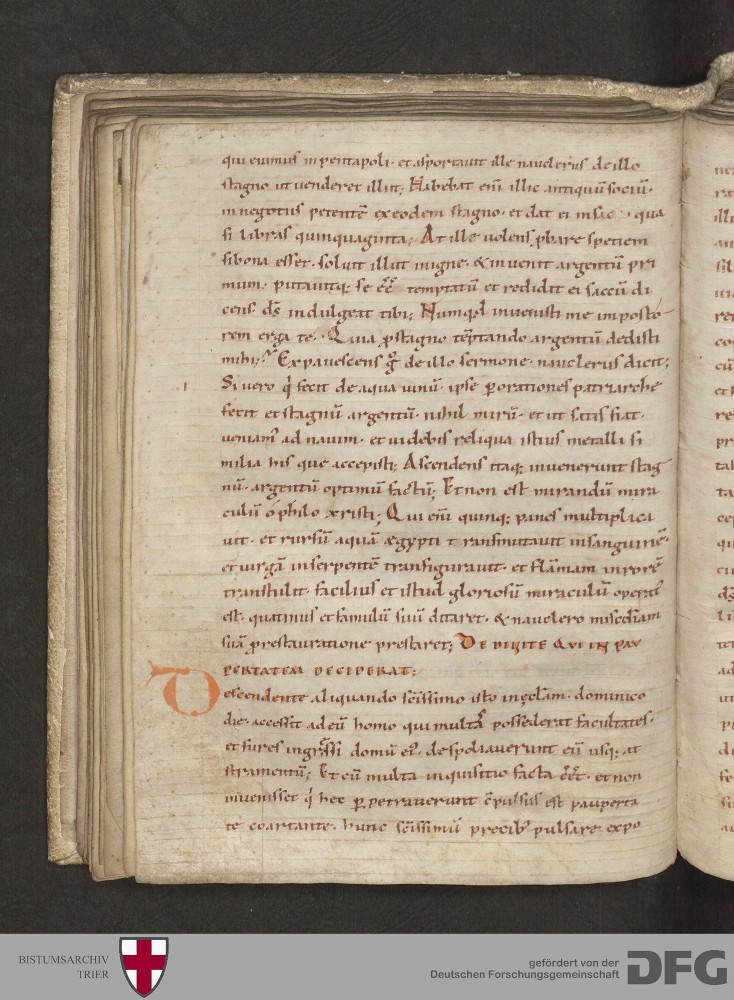 qui eiimus in pentapoli· et asportauit ille nauclerus de illo
stagno ut uenderet illut; Habebat eni͂ illic antiquũ sociũ·
in negotiis petentẽ ex eodem stagno· et dat ei in sac qua
si libras quinquaginta; At ille uolens ꝓbare speciem
si bona esset· soluit illut in igne· & inuenit argentũ pri
mum· putauitq; se ẽẽ temptatũ et reddidit ei saccũ di
cens· d̅s indulgeat tibi; Numq͛d inuenisti me inposto
rem erga te· Quia ꝓ stagno tẽptando argentũ dedisti
mihi; Expauescens g̊ de illo sermone· nauclerus dicit;
Si uero q͛ fecit de aqua uinũ· ipse ꝑ orationes patriarche
fecit et stagnũ argentũ· nihil mirũ· et ut satis fiat·
ueniam᾽ ad nauim· et uidebis reliqua istius metalli si
milia his que accepisti; Ascendens itaq; inuenerunt stag
nũ· argentũ optimũ factũ; Et non est mirandũ mira
culũ o philo xristi; Qui eni͂ quinq; panes multiplica
uit· et rursũ aquã ægypti transmutauit in sanguinẽ·
et uirgã in serpentẽ transfigurauit· et flãmam in rorẽ
transtulit· facilius et istud gloriosũ miraculũ operat᾽
est· quatinus et famulũ suũ ditaret· & nauclero misc̅diam
suã ꝓ restauratione prestaret; DE DIUITE QUI IN PAU
PERTATEM DECIDERAT;
Descendente aliquando sc̅issimo isto in ęcl̅am· dominico
die· accessit ad eũ homo qui multas possederat facultates·
et fures ingressi domũ ei᾽· despoliauerunt eũ usq; at
stramentũ; Et cũ multa inquisitio facta ẽẽt· et non
inuenisset q͛ hec ꝑpetrauerunt cõpulsus est pauperta
te coartante· hunc sc̅issimũ precib᾽ pulsare expo
BISTUMSARCHIV
TRIER
gefördert von der
Deutschen Forschungsgemeinschaft
DFG